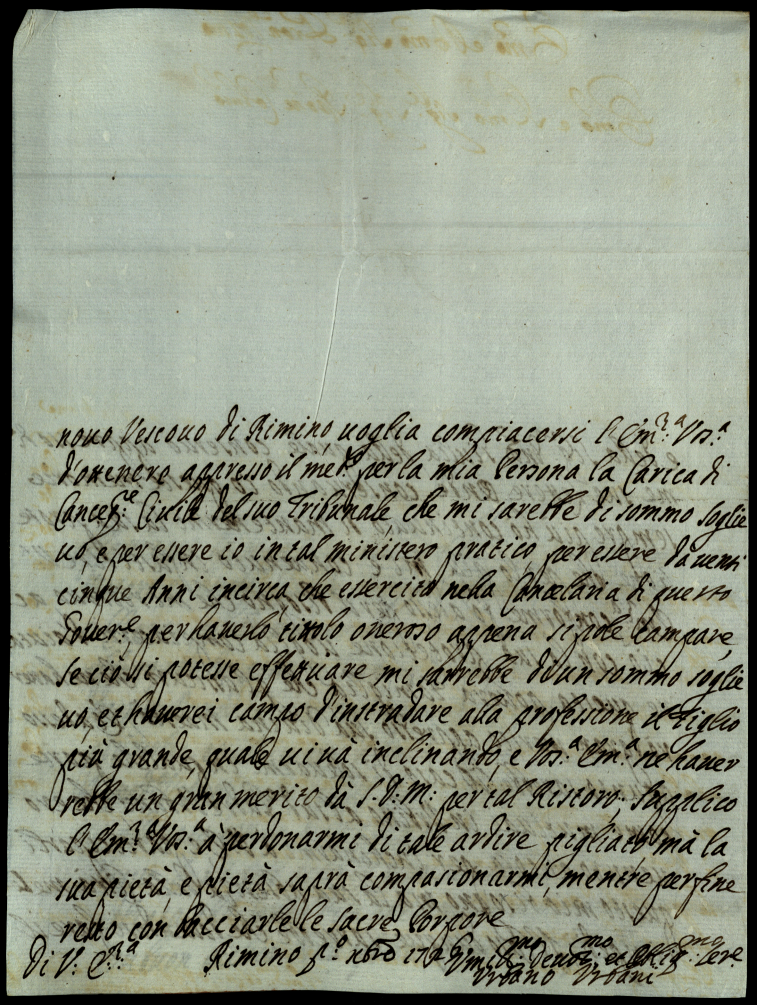 nouo Vescouo di Rimino, uoglia compiacersi l'Em.ª Vos.ª
d'ottenere appresso il med.º per la mia Persona la Carica di
Cance.re Ciuile del suo Tribunale, che mi sarebbe di sommo soglie
uo, e per essere io in tal ministero pratico, per essere da uenti
cinque Anni incirca, che essercito nella Cancelaria di questo
Gouer.e, per hauerlo titolo oneroso appena si pole campare,
se ciò si potesse effettuare mi sarrebbe di un sommo soglie
uo, et hauerei campo d'instradare alla professione il Figlio
più grande, quale ui uà inclinando, e Vos.ª Em.ª ne hauer
rebbe un gran merito dà S. D. M: per tal Ristoro; Supplico
l'Em.ª Vos.ª à perdonarmi di tale ardire pigliato, mà la
sua pietà, e pietà saprà compasionarmi, mentre per fine
resto con bacciarle le sacre Porpore
Di V: E.ª Rimino p.º nbro Vmil.mo Deuot.mo et Oblig.mo Sere
Vrbano Vrbani